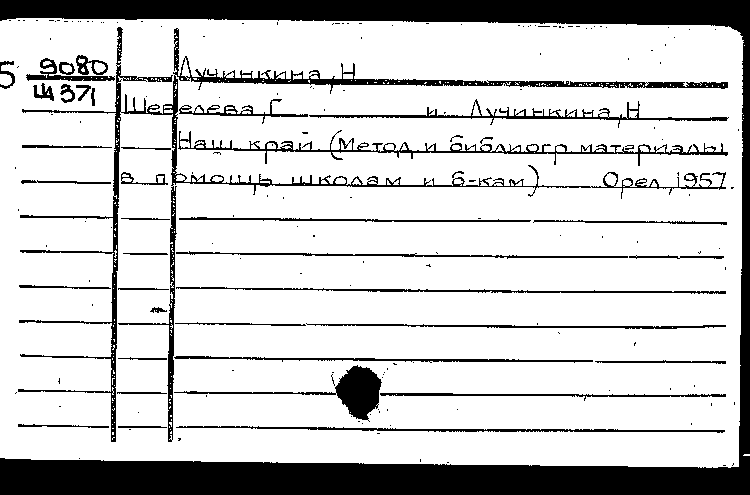 5 9080 Лучинкина, Н
Ш371
Шевелева, Г и Лучинкина, Н
Наш край (Метод и библиогр материалы
в помощь школам и б-кам) Орел, 1957.